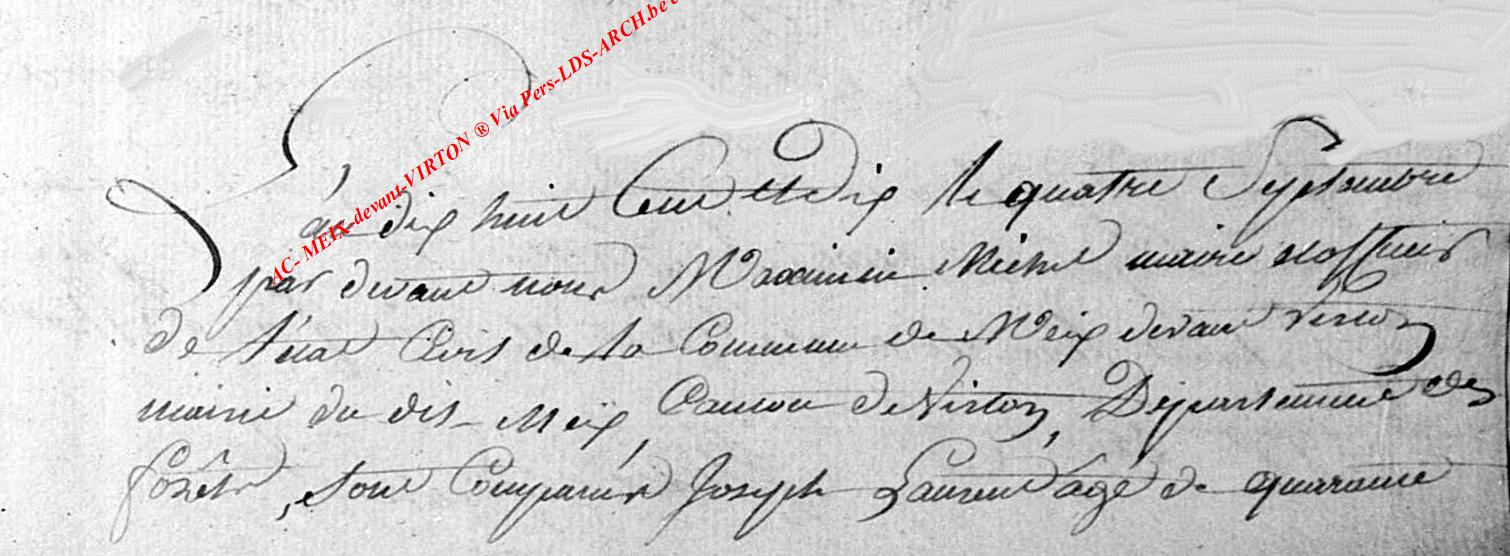 AC- MEIX-devant-VIRTON ® Via Pers-LDS-ARCH.be
L'an dix huit Cent et dix le quatre Septembre
par devant nous Maximin Michel maire et officier
de l'état Civil de la Commune de Meix devant Virton
mairie du dit Meix, Canton de Virton, Département des
forêts, sont Comparus Joseph Laurent âgé de quarante